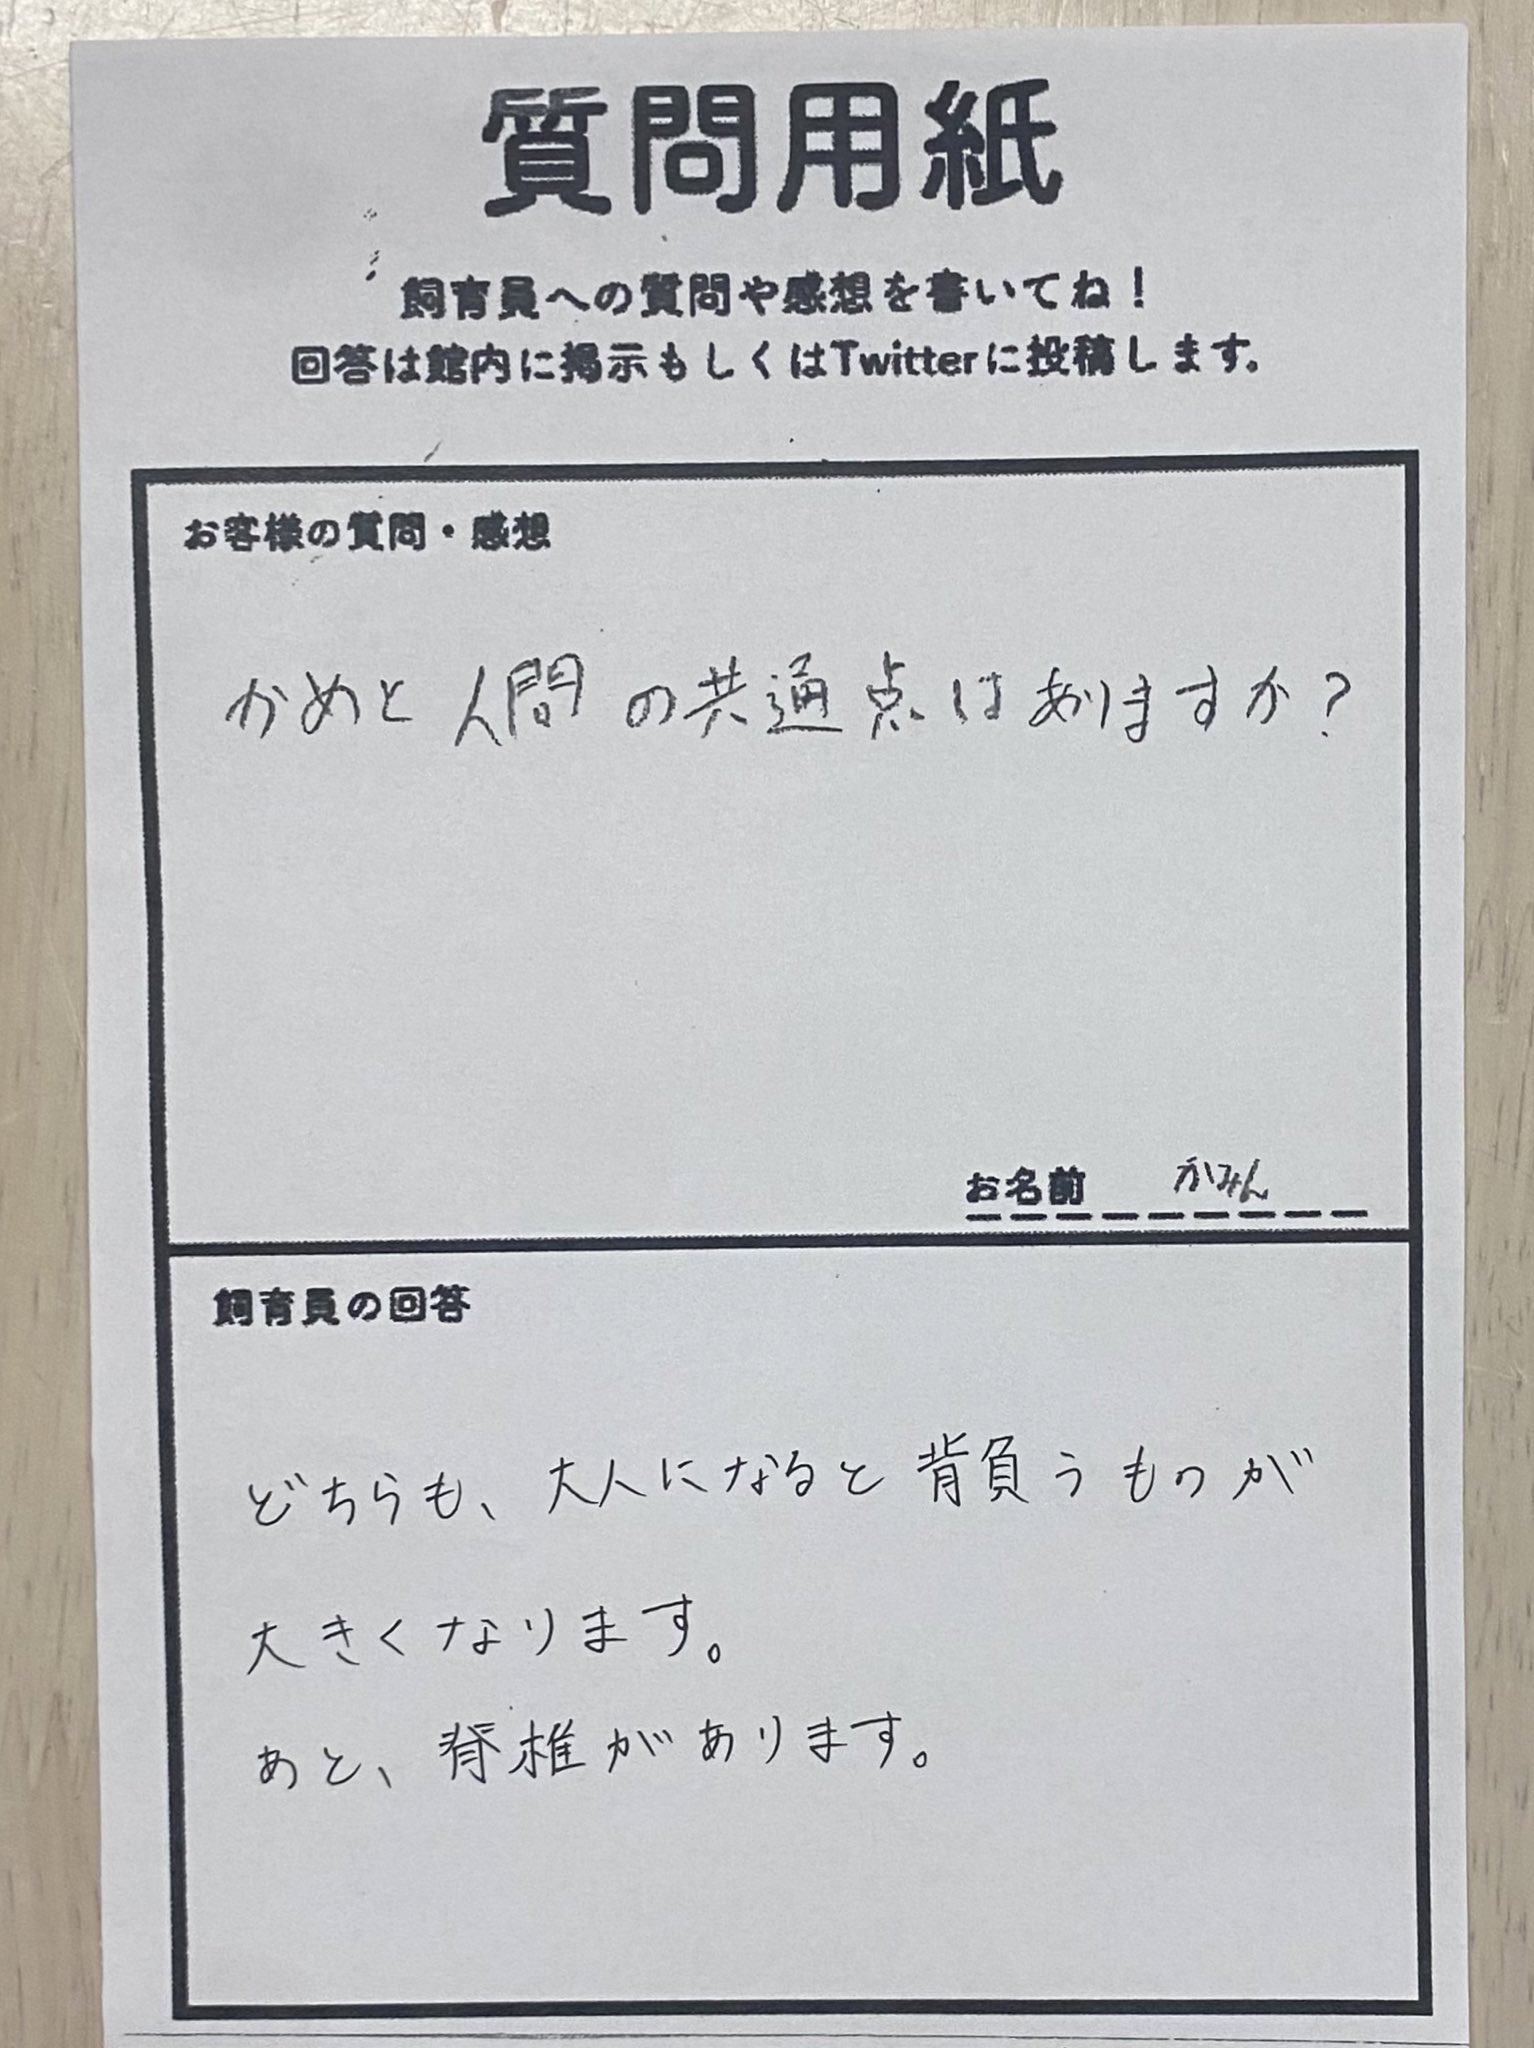 質問用紙
飼育員への質問や感想を書いてね！
回答は館内に掲示もしくはTwitterに投稿します。
お客様の質問・感想
かめと人間の共通点はありますか？
お名前 かみん
飼育員の回答
どちらも、大人になると背負うものが
大きくなります。
あと、脊椎があります。